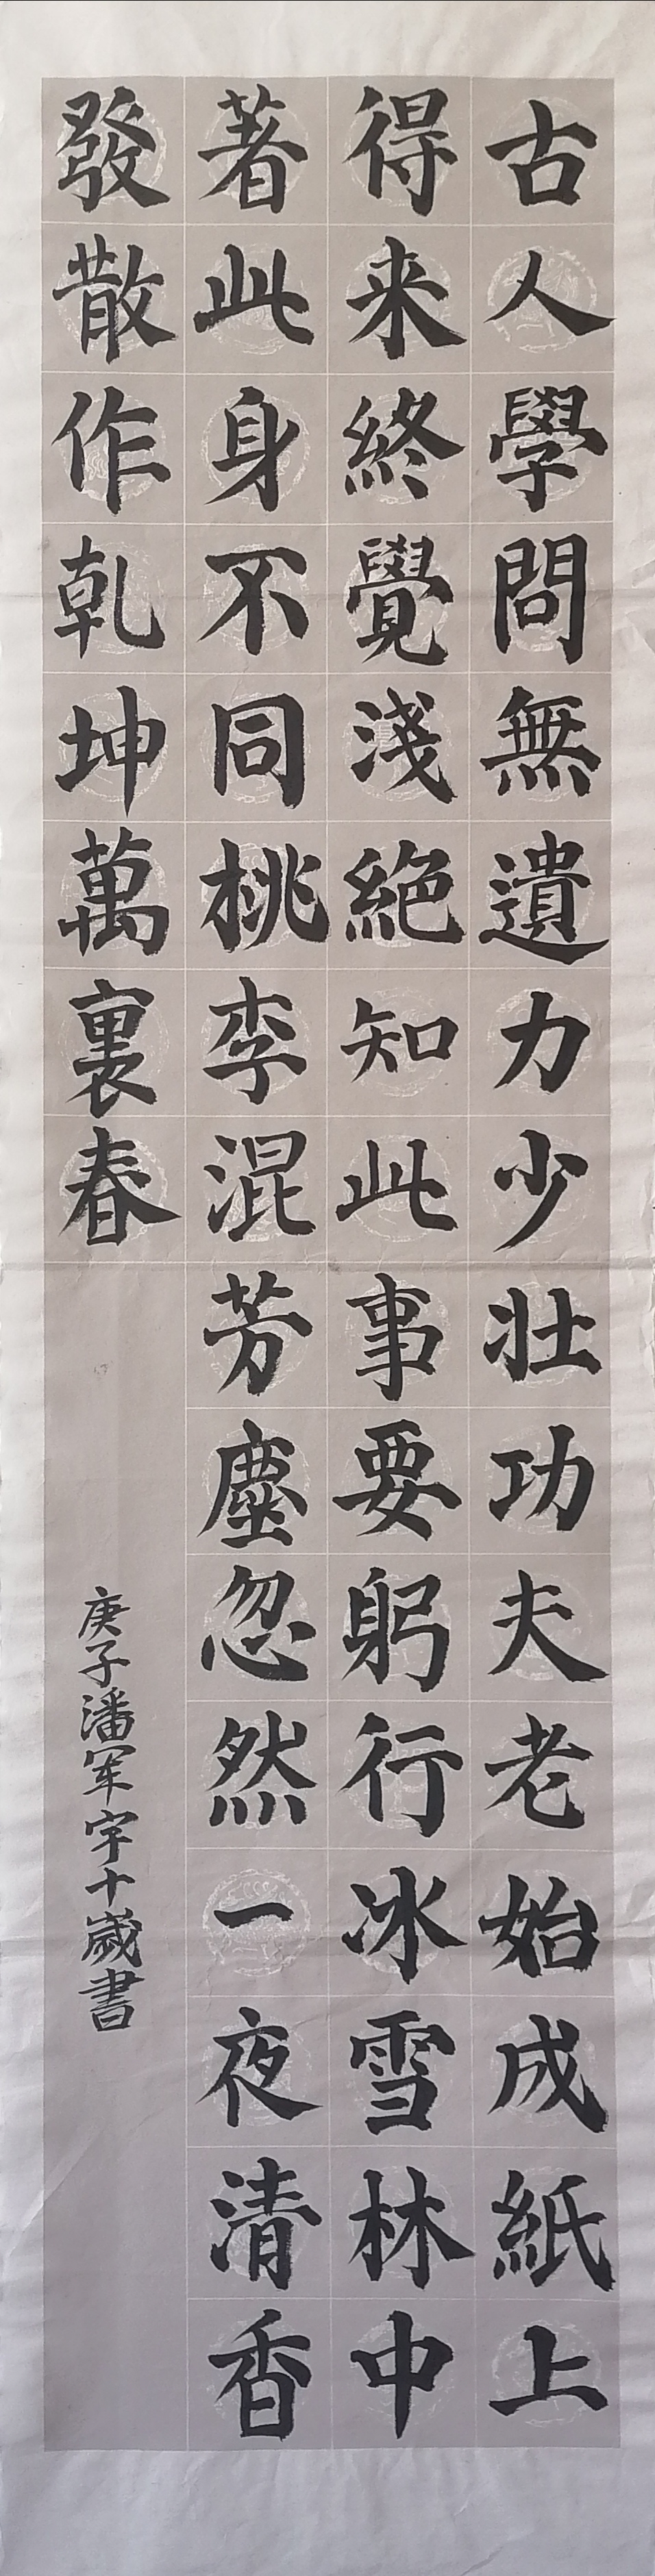 古人學問無遺力少壯功夫老始成紙上
得来終覺淺絕知此事要躬行冰雪林中
著此身不同桃李混芳塵忽然一夜清香
發散作乾坤萬裏春
庚子潘軍宇十歲書